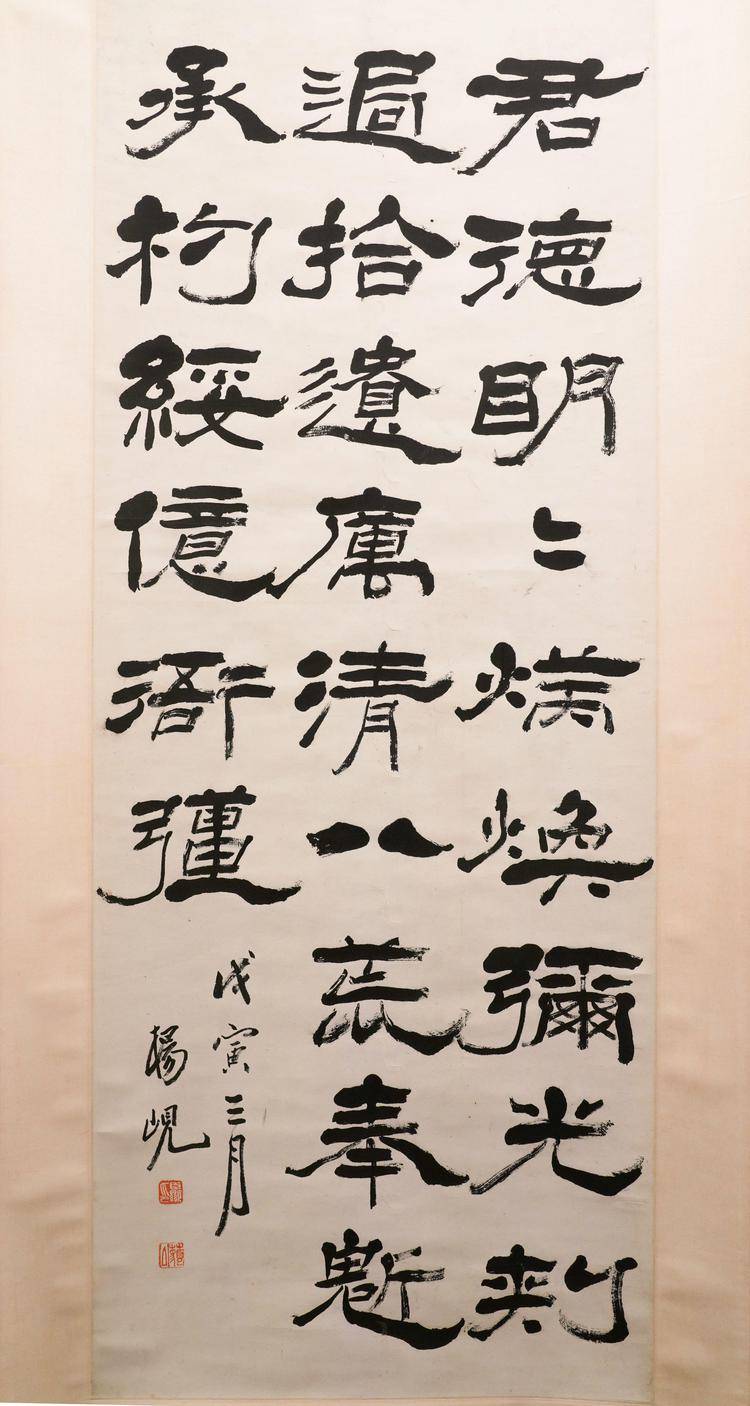 君德明〻炳煥彌光刺
過拾遺厲清八荒奉魁
承杓綏億衙彊
戊寅三月
楊峴